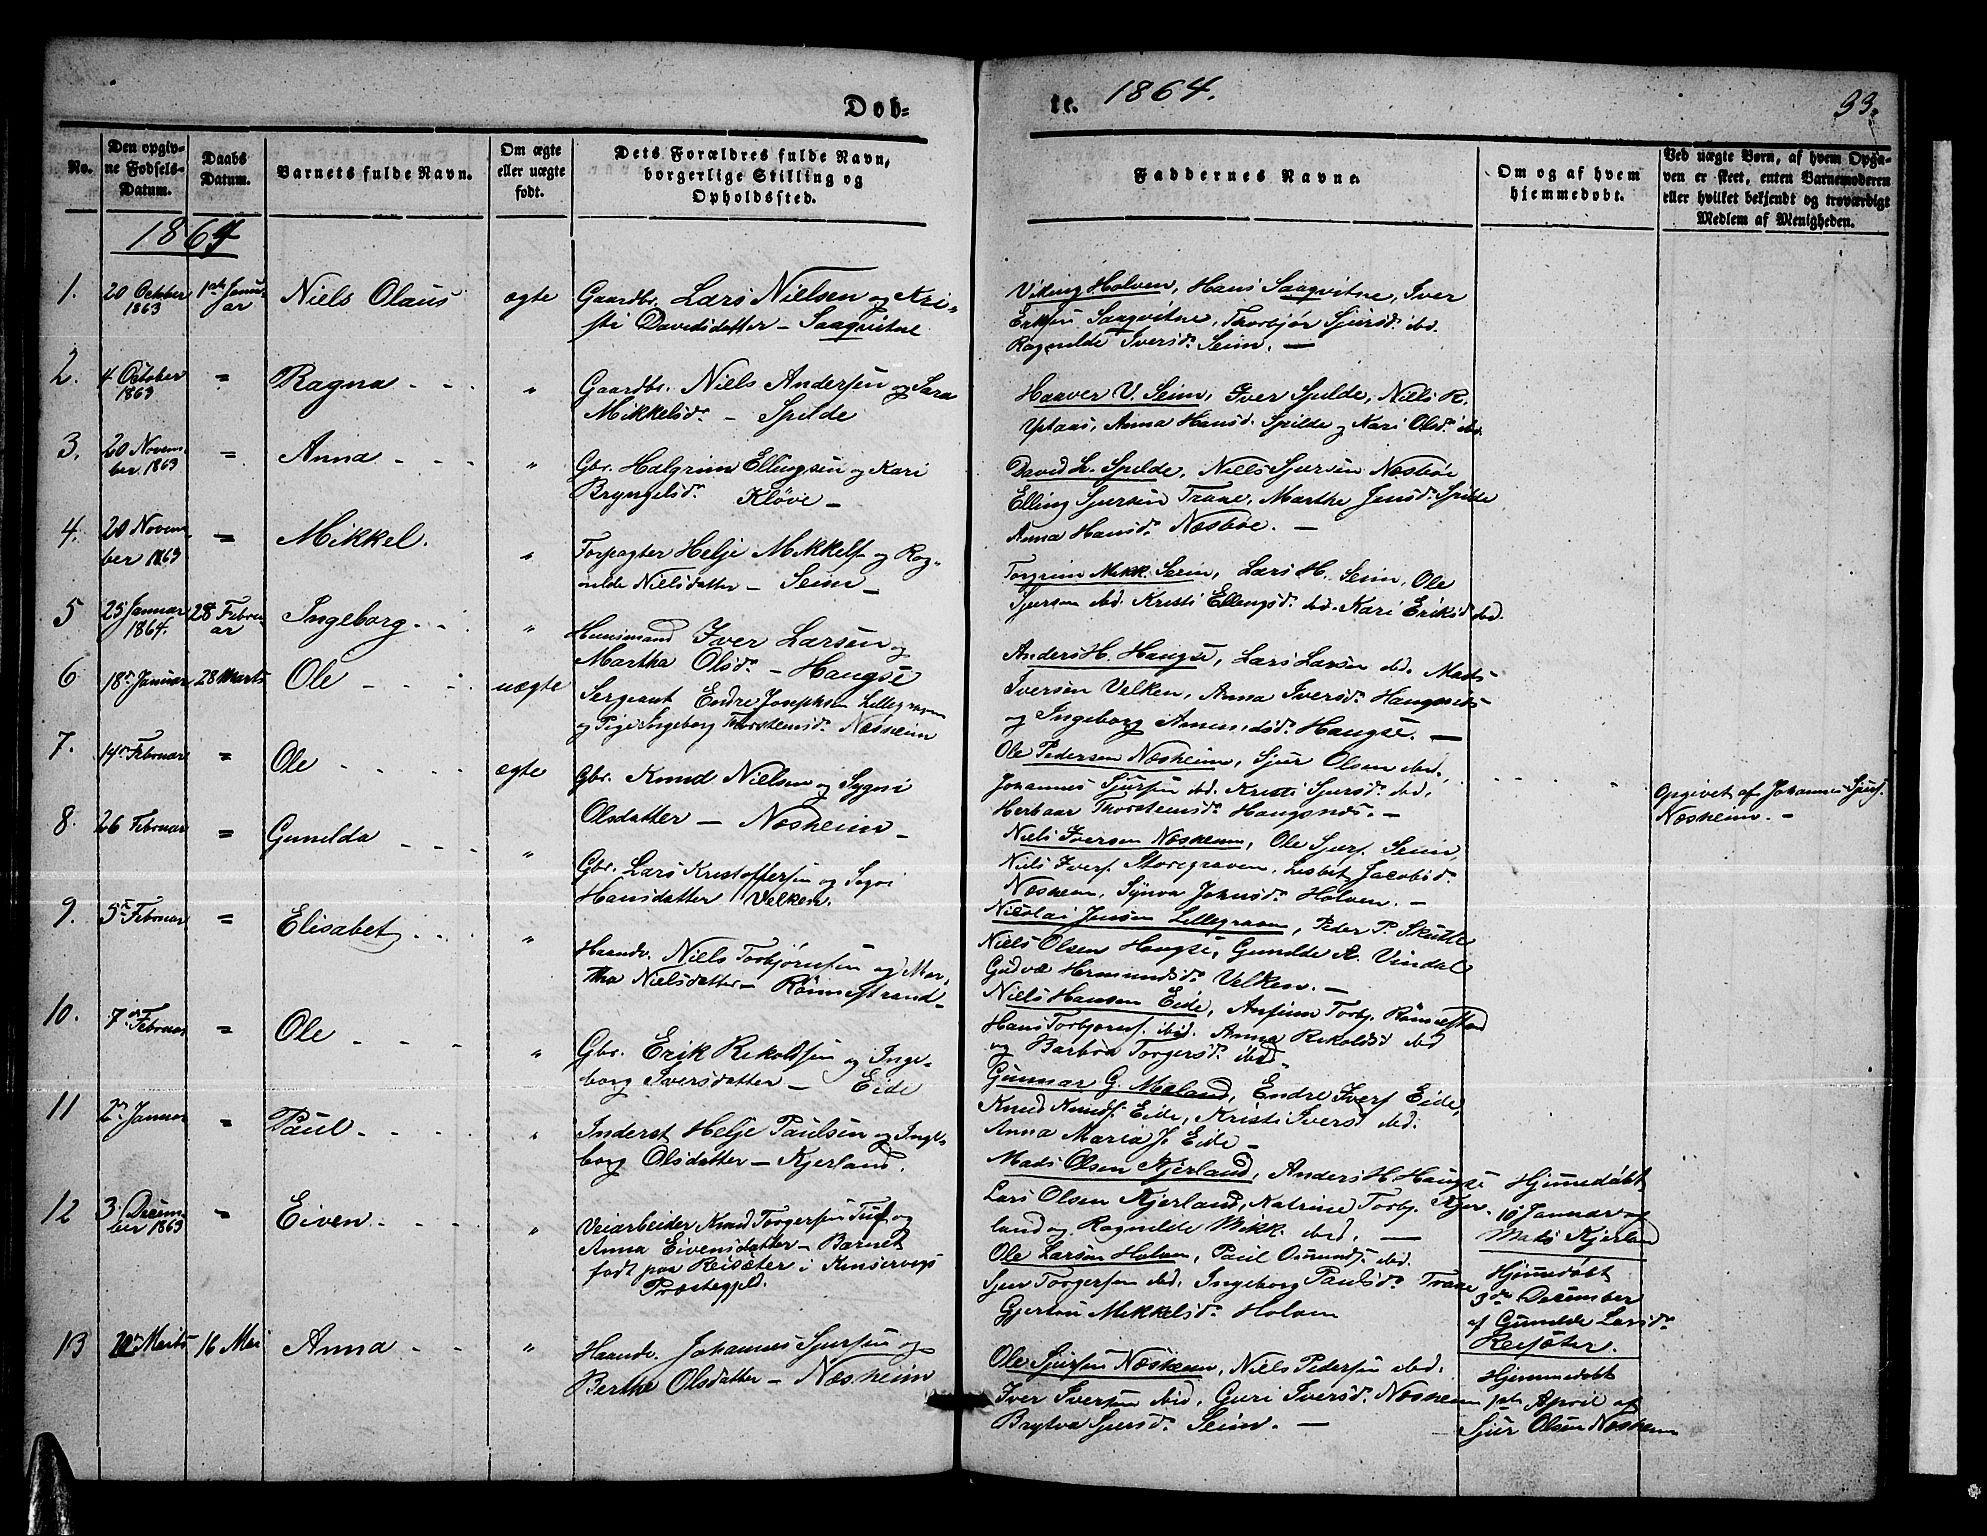 Dob=
te. 1864.
33.
No.
Den opgiv=
ne Fødsels=
Datum.
Daabs
Datum.
Barnets fulde Navn.
Om ægte
eller uægte
født.
Dets Forældres fulde Navn,
borgerlige Stilling og
Opholdssted.
Faddernes Navne.
Om og af hvem
hjemmedøbt.
Ved uægte Børn, af hvem Opga=
ven er skeet, enten Barnemoderen
eller hvilket bekjendt og troværdigt
Medlem af Menigheden.
1864
1. 20 October 1863 1ste Januar Niels Olaus ægte
Gaardbr. Lars Nielsen og Kri-
sti Davidsdatter - Saaqvitne
Viking Holven, Hans Saaqvitne, Iver
Eriksen Saaqvitne, Thorbjør Sjursd. ibd.
Ragnilde Iversd. Seim. -
2. 4 October 1863 = Ragna "
Gaardbr. Niels Andersen og Sara
Mikkelsd. - Spilde
Haaver V. Seim, Iver Spilde, Niels R.
Anna Hansd. Spilde og Kari Olsd. ibd.
3. 20 November 1863 = Anna "
Gbr. Halgrim Ellingsen og Kari
Bryngelsd. Kløve -
David L. Spilde, Niels Sjursen Næsbøe
Elling Sjursen Traae, Marthe Jensd. Spilde
Anna Hansd. Næsbøe. -
4. 20 November 1863 = Mikkel. "
Forpagter Helje Mikkels. og Rag-
nilde Nielsdatter - Seim -
Torgrim Mikk. Seim, Lars H. Seim, Ole
Sjursen ibd. Kristi Ellingsd. ibd. Kari Eriksd. ibd.
5 25 Januar 1864. 28 Februar Ingeborg "
Huusmand Iver Larsen og
Martha Olsd. - Haugse
Anders H. Haugse, Lars Larsen ibd. Mads
Iversen Velken, Anna Iversd. Haugsnes
og Ingeborg Amundsd. Haugse. -
6 18de Januar 28 Marts Ole uægte
Sergeant Endre Josephsen Lillegraven
og Pige Ingeborg Thorsteinsd. Næsheim
Ole Pedersen Næsheim, Sjur Olsen ibd.,
Johannes Sjursen ibd. Kristi Sjursd. ibd.
Herbaar Thorsteinsd. Haugsnes. -
Opgivet af Johannes Sjurs.
Næsheim. -
7. 14de Februar = Ole ægte
Gbr. Knud Nielsen og Sygni
Olsdatter - Næsheim -
Niels Iversen Næsheim, Ole Sjurs. Seim,
Niels Ivers. Storegraven, Lisbet Jacobsd.
Næsheim, Synva Johnsd. Holven. -
8. 26 Februar = Gunilda "
Gbr. Lars Kristoffersen og Sygni
Hansdatter Velken.
Nicolai Jensen Lillegraven, Peder P. Skutle
Niels Olsen Haugse, Gunilde A. Vindal
Gudvæ Hermundsd. Velken. -
9. 5te Februar = Elisabet "
Haandv. Niels Torbjørnsen og Mar-
tha Nielsdatter - Rønnestrand -
Niels Hansen Eide, Anfinn Torbj. Rønnestrand
Hans Torbjørns. ibid. Anna Rikoldsd. ibd
og Barbra Torgersd. ibd.
10. 7de Februar = Ole "
Gbr. Erik Rikoldsen og Inge-
borg Iversdatter - Eide
Gunnar G. Mæland, Endre Ivers. Eide,
Knud Knuds. Eide, Kristi Iversd. ibd.
Anna Maria J. Eide -
11 2den Januar = Paul "
Inderst Helje Paulsen og Inge-
borg Olsdatter - Kjerland.
Mads Olsen Kjerland, Anders H. Haugse
Lars Olsen Kjerland, Katrine Torbj. Kjer-
land og Ragnilde Mikk. ibid. -
Hjemmedøbt
10 Januar af
Mads Kjerland
12 3 December 1863 = Eiven "
Veiarbeider Knud Torgersen og
Anna Eivensdatter - Barnet
født paa Reisæter i Kinservigs
Præstegjeld.
Ole Larsen Holven, Paul Osmunds. ibid.
Sjur Torgersen ibd. Ingeborg Paulsd. Traae
Gjertru Mikkelsd. Holven
Hjemmedøbt
3de December
af Gunilde Larsd.
Reisæter.
13 Marts 16 Mai Anna "
Haandv. Johannes Sjursen og
Berthe Olsdatter - Næsheim
Ole Sjursen Næsheim, Niels Pedersen ibd.
Iver Iversen ibid, Guri Iversd. Næsheim
Brytva Sjursd. Seim. -
Hjemmedøbt
1ste April af
Sjur Olsen Næsheim